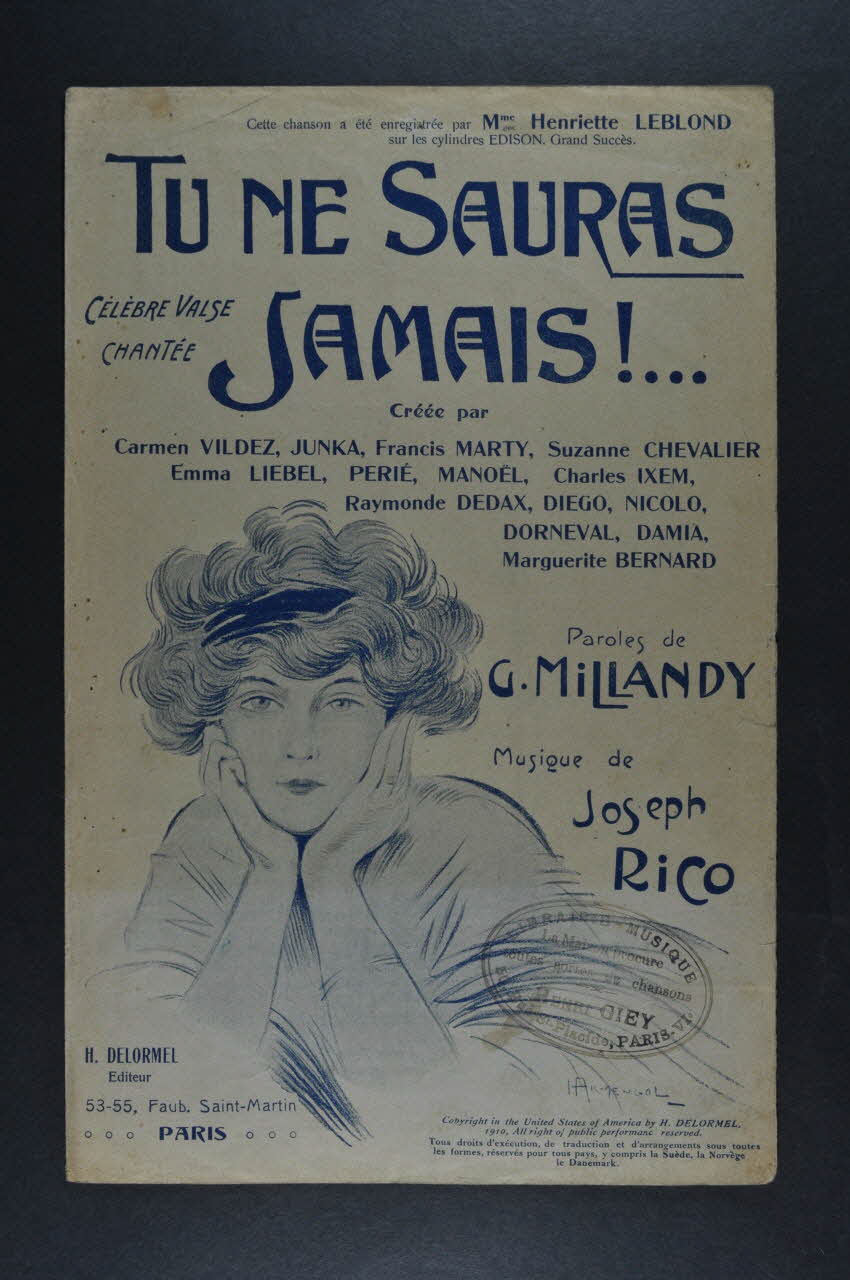 Cette chanson a été enregistrée par Mme Henriette LEBLOND
sur les cylindres EDISON. Grand Succès.
TU NE SAURAS
CÉLÈBRE VALSE
CHANTÉE
JAMAIS!...
Créée par
Carmen VILDEZ, JUNKA, Francis MARTY, Suzanne CHEVALIER
Emma LIEBEL, PERIÉ, MANOËL, Charles IXEM,
Raymonde DEDAX, DIEGO, NICOLO,
DORNEVAL, DAMIA,
Marguerite BERNARD
Paroles de
G. MILLANDY
Musique de
Joseph
RICO
LIBRAIRIE-MUSIQUE
La Maison procure
toutes sortes de chansons
HENRI GIEY
Placide, PARIS-VIe
H. DELORMEL
Editeur
53-55, Faub. Saint-Martin
PARIS
HARMENGOL
Copyright in the United States of America by H. DELORMEL,
1910, All right of public performanc reserved.
Tous droits d'exécution, de traduction et d'arrangements sous toutes
les formes, réservés pour tous pays, y compris la Suède, la Norvège
le Danemark.